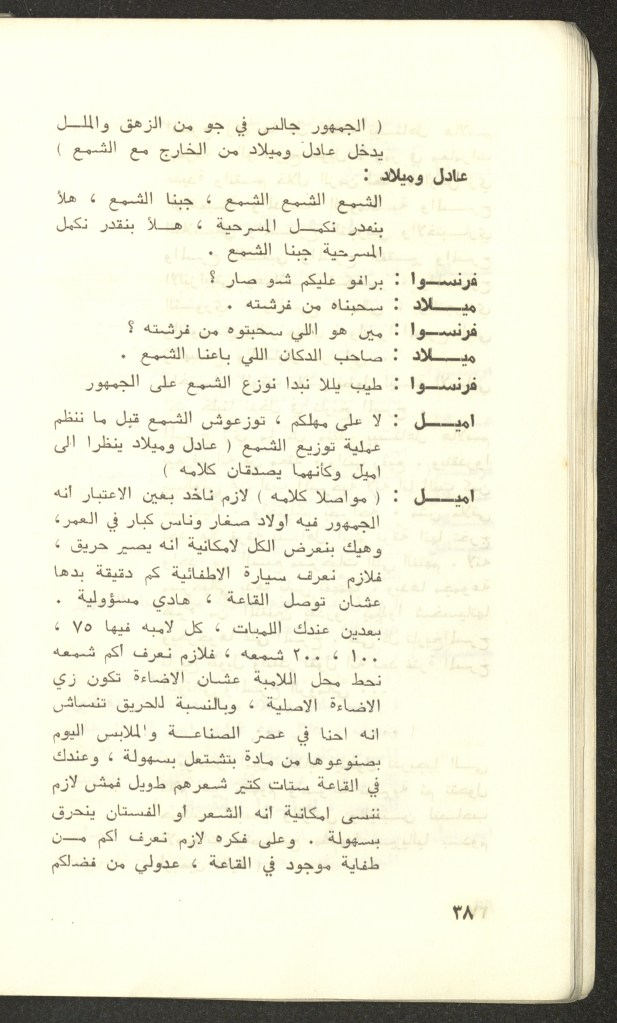 ( الجمهور جالس في جو من الزهق والملـل
يدخل عادل وميلاد من الخارج مع الشمع )
عادل وميلاد :
الشمع الشمع الشمع ، جبنا الشمع ، هلأ
بنقدر نكمـل المسرحية ، هـلأ بنقدر نكمل
المسرحية جبنا الشمع .
فرنسـوا : برافو عليكم شو صار ؟
ميـــلاد : سحبناه من فرشته .
فرنسـوا : مين هو اللي سحبتوه من فرشته ؟
ميـــلاد : صاحب الدكان اللي باعنا الشمع .
فرنسـوا : طيب يللا نبدا نوزع الشمع على الجمهور
اميـــل : لا على مهلكم ، توزعوش الشمع قبل ما ننظم
عملية توزيع الشمع ( عادل وميلاد ينظرا الى
اميل وكأنهما يصدقان كلامه )
اميـــل : ( مواصلا كلامه ) لازم ناخد بعين الاعتبار انه
الجمهور فيه اولاد صغار وناس كبار في العمر،
وهيك بنعرض الكل لامكانية انه يصير حريق ،
فلازم نعرف سيارة الاطفائية كم دقيقة بدها
عشان توصل القاعة ، هادي مسؤولية .
بعدين عندك اللمبات ، كل لامبه فيها ٧٥ ،
١٠٠ ، ٢٠٠ شمعه ، فلازم نعرف اكم شمعه
نحط محل اللامبة عشان الاضاءة تكون زي
الاضاءة الاصلية ، وبالنسبة للحريق تنساش
انه احنا في عصر الصناعـة والملابس اليوم
بصنوعوها من مادة بتشتعل بسهولة ، وعندك
في القاعة ستات كتير شعرهم طويل فمش لازم
ننسى امكانية انه الشعر او الفستان ينحرق
بسهولة . وعلى فكره لازم نعرف اكم مـن
طفاية موجود في القاعة ، عدولي من فضلكم
٣٨